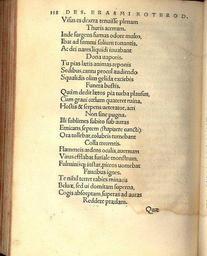 118 DES. ERASMI ROTEROD.
Visus es dextra tenuisse plenam
Thuris acerram.
Inde surgens fumus odore multo,
Ibat ad summi solium tonantis,
Ac dei nares liquidi iuuabat
Dona uaporis.
Tu pias lætis animas reponis
Sedibus, cantu procul audiendo
Squalidis olim gelida exciebis
Funera bustis.
Quin dedit lætos pia turba plausus,
Cum graui cœlum quateret ruina,
Hostis & serpens ueterator, acri
Non sine pugna.
Illi sublimes subito sub auras
Emicans, serpens
Ora tollebat, rabulis tumebat
Colla ueneris.
Flammeis ardens oculis, auernum
Virus efflabat, furiale monstrum,
Fulminis instar, piceos uomebat
Faucibus ignes.
Te nihil terret rabies minacis
Beluæ, sed ui domitam superna,
Cogis absorptam, superas ad auras
Reddere prædam.
Quæ